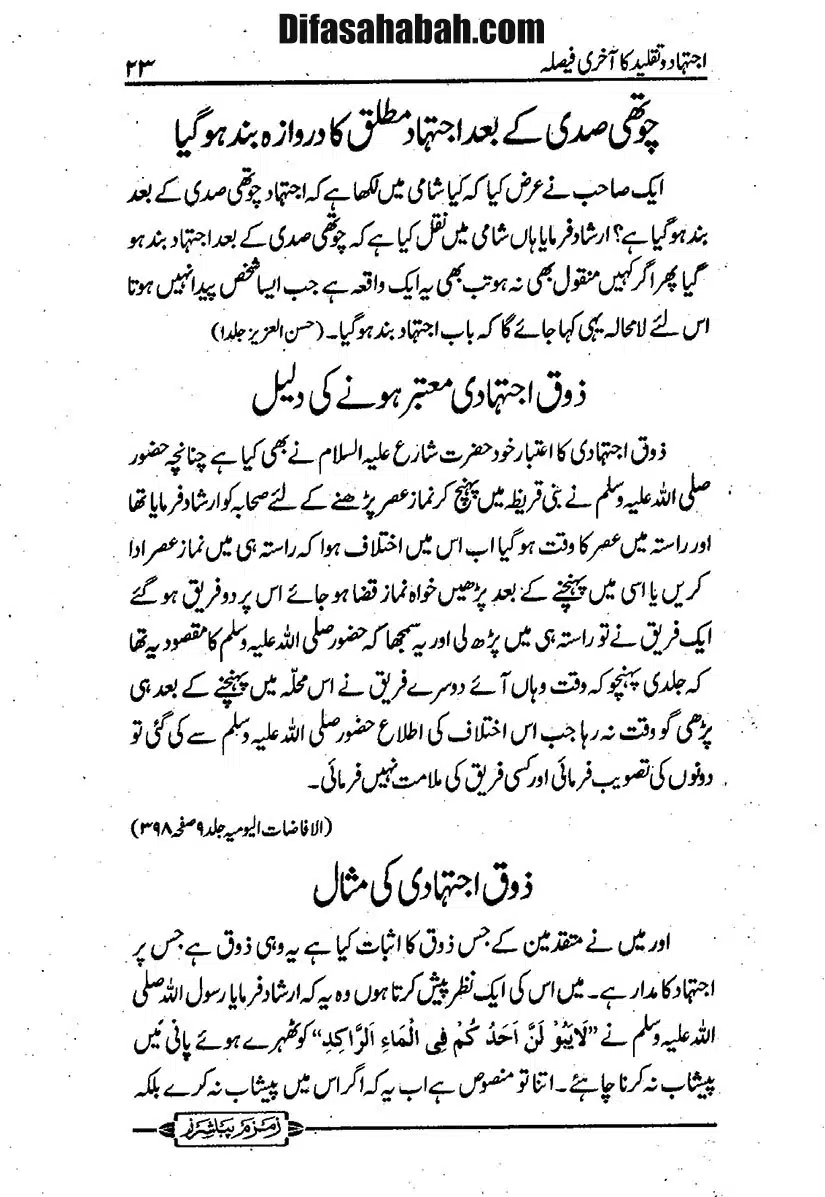 Difasahabah.com
اجتہاد و تقلید کا آخری فیصلہ
۲۳
چوتھی صدی کے بعد اجتہاد مطلق کا دروازہ بند ہوگیا
ایک صاحب نے عرض کیا کہ کیا شامی میں لکھا ہے کہ اجتہاد چوتھی صدی کے بعد
بند ہوگیا ہے؟ ارشاد فرمایا ہاں شامی میں نقل کیا ہے کہ چوتھی صدی کے بعد اجتہاد بند ہو
گیا پھر اگر کہیں منقول بھی نہ ہو تب بھی یہ ایک واقعہ ہے جب ایسا شخص پیدا نہیں ہوتا
اس لئے لامحالہ یہی کہا جائے گا کہ باب اجتہاد بند ہوگیا۔ (حسن العزیز جلد۱)
ذوق اجتہادی معتبر ہونے کی دلیل
ذوق اجتہادی کا اعتبار خود حضرت شارع علیہ السلام نے بھی کیا ہے چنانچہ حضور
صلی اللہ علیہ وسلم نے بنی قریظہ میں پہنچ کر نماز عصر پڑھنے کے لئے صحابہ کو ارشاد فرمایا تھا
اور راستہ میں عصر کا وقت ہوگیا اب اس میں اختلاف ہوا کہ راستہ ہی میں نماز عصر ادا
کریں یا اسی میں پہنچنے کے بعد پڑھیں خواہ نماز قضا ہو جائے اس پر دو فریق ہو گئے
ایک فریق نے تو راستہ ہی میں پڑھ لی اور یہ سمجھا کہ حضور صلی اللہ علیہ وسلم کا مقصود یہ تھا
کہ جلدی پہنچو کہ وقت وہاں آئے دوسرے فریق نے اس محلّہ میں پہنچنے کے بعد ہی
پڑھی گو وقت نہ رہا جب اس اختلاف کی اطلاع حضور صلی اللہ علیہ وسلم سے کی گئی تو
دونوں کی تصویب فرمائی اور کسی فریق کی ملامت نہیں فرمائی۔
(الافاضات الیومیہ جلد ۹ صفحہ ۳۹۸)
ذوق اجتہادی کی مثال
اور میں نے متقدمین کے جس ذوق کا اثبات کیا ہے یہ وہی ذوق ہے جس پر
اجتہاد کا مدار ہے۔ میں اس کی ایک نظر پیش کرتا ہوں وہ یہ کہ ارشاد فرمایا رسول اللہ صلی
اللہ علیہ وسلم نے ”لَا یَبُوْ لَنَّ اَحَدُ کُمْ فِی الْمَاءِ الرَّاکِدِ“ کو ٹھہرے ہوئے پانی میں
پیشاب نہ کرنا چاہئے۔ اتنا تو منصوص ہے اب یہ کہ اگر اس میں پیشاب نہ کرے بلکہ
زمزم پبلشرز